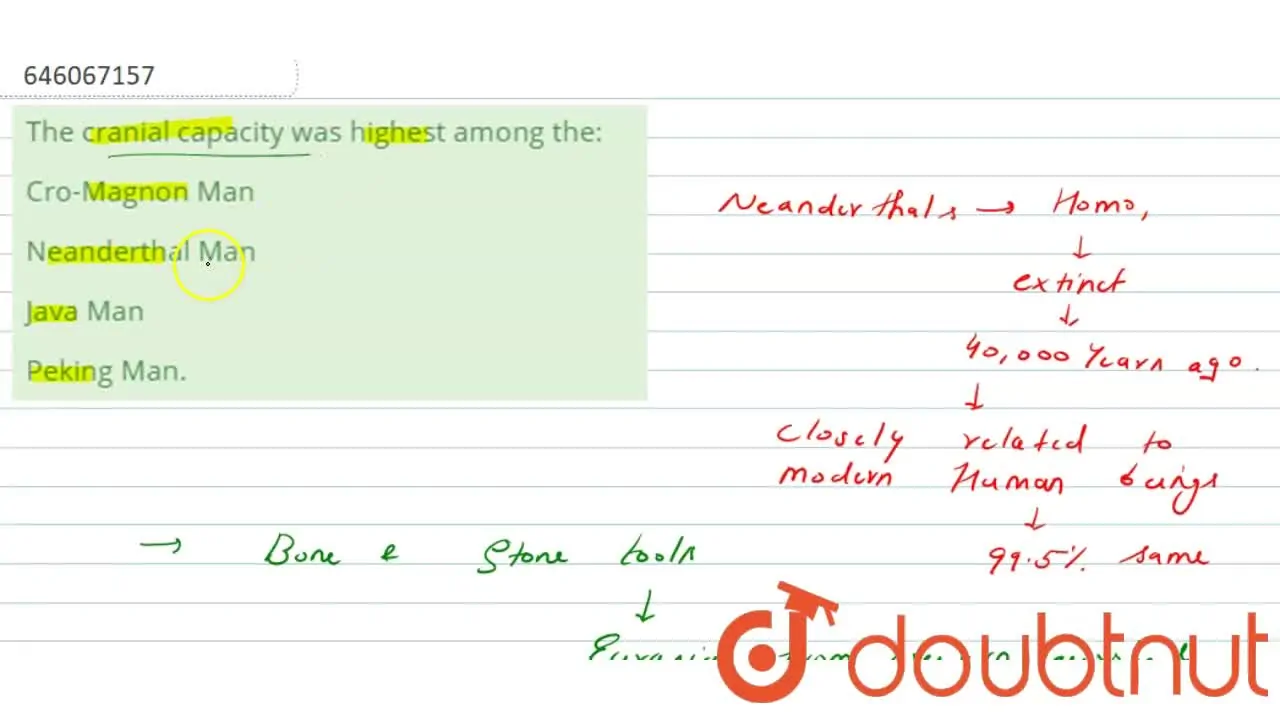 646067157
The cranial capacity was highest among the:
Cro-Magnon Man
Neanderthal Man
Java Man
Peking Man.
Neanderthals → Homo,
↓
extinct
↓
40,000 Years ago.
↓
closely related to
modern Human beings
↓
99.5% same
→ Bone & Stone tools
↓
doubtnut